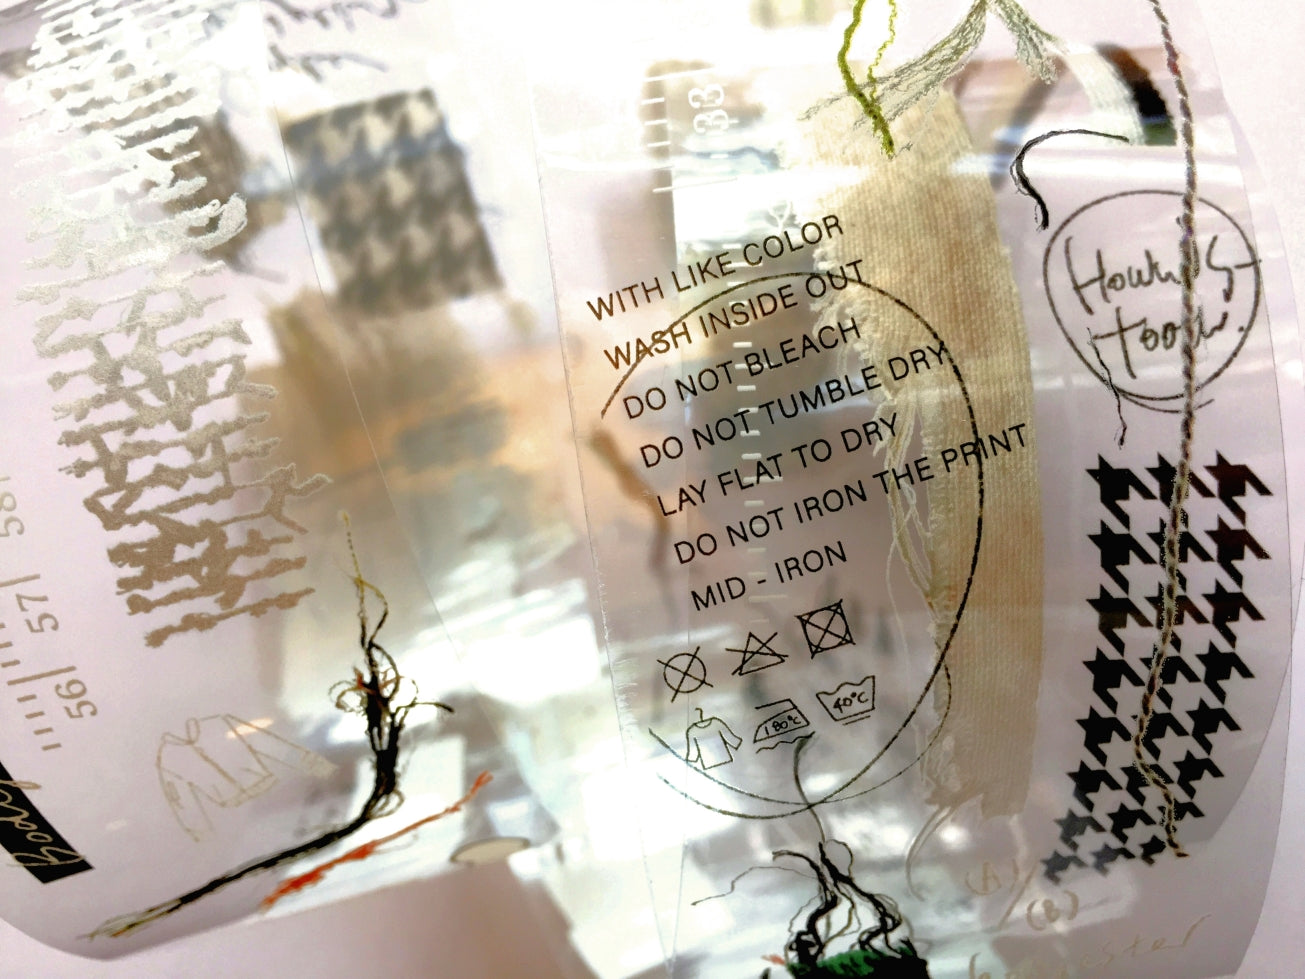 33
WITH LIKE COLOR
WASH INSIDE OUT
DO NOT BLEACH
DO NOT TUMBLE DRY
LAY FLAT TO DRY
DO NOT IRON THE PRINT
MID - IRON
180°C
40°C
58
57
56
Body
(A)
(B)